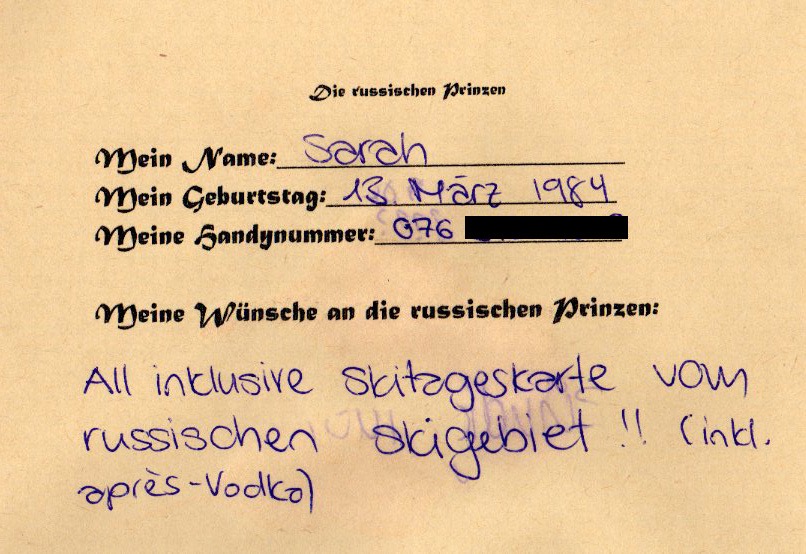 Die russischen Prinzen
Mein Name: Sarah
Mein Geburtstag: 13 März 1984
Meine Handynummer: 076
Meine Wünsche an die russischen Prinzen:
All inklusive Skitageskarte vom
russischen Skigebiet !! (inkl.
après-Vodka)